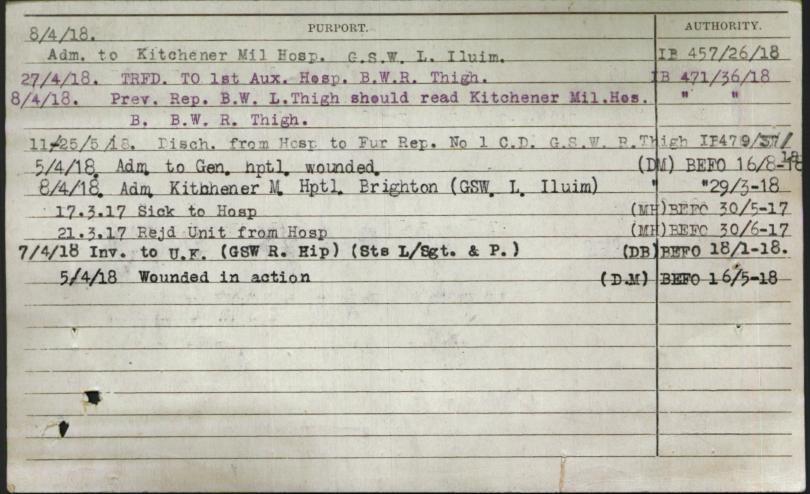 PURPORT. AUTHORITY.
8/4/18.
Adm. to Kitchener Mil Hosp. G.S.W. L. Iluim. IB 457/26/18
27/4/18. TRFD. TO 1st Aux. Hosp. B.W.R. Thigh. IB 471/36/18
8/4/18. Prev. Rep. B.W. L.Thigh should read Kitchener Mil.Hos. " "
B. B.W. R. Thigh.
11/25/5/18. Disch. from Hosp to Fur Rep. No 1 C.D. G.S.W. R.Thigh IB479/37/18
5/4/18. Adm to Gen. hptl. wounded. (DM) BEFO 16/8-18
8/4/18. Adm Kitbhener M Hptl. Brighton (GSW. L. Iluim) " "29/3-18
17.3.17 Sick to Hosp (MH)BEFO 30/5-17
21.3.17 Rejd Unit from Hosp (MH)BEFO 30/6-17
7/4/18 Inv. to U.K. (GSW R. Hip) (Sts L/Sgt. & P.) (DB)BEFO 18/1-18.
5/4/18 Wounded in action (D.M) BEFO 16/5-18